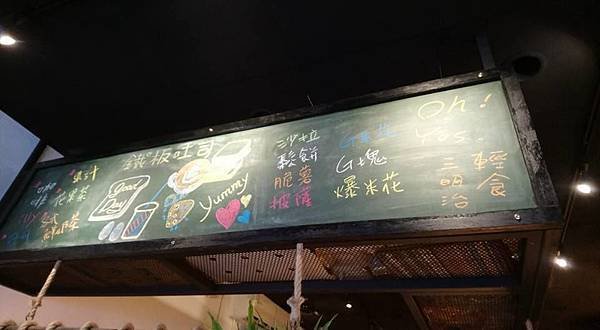 鐵板吐司
果汁
咖啡
花果茶
Good
Day
Yummy
沙拉
鬆餅
脆薯
披薩
G塊
爆米花
Oh!
Yes
輕食
三明治